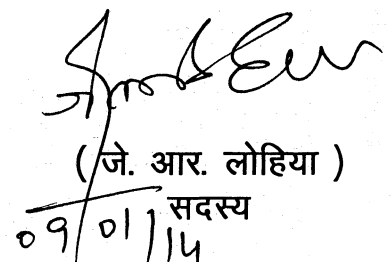 ( जे. आर. लोहिया )
सदस्य
09/01/14